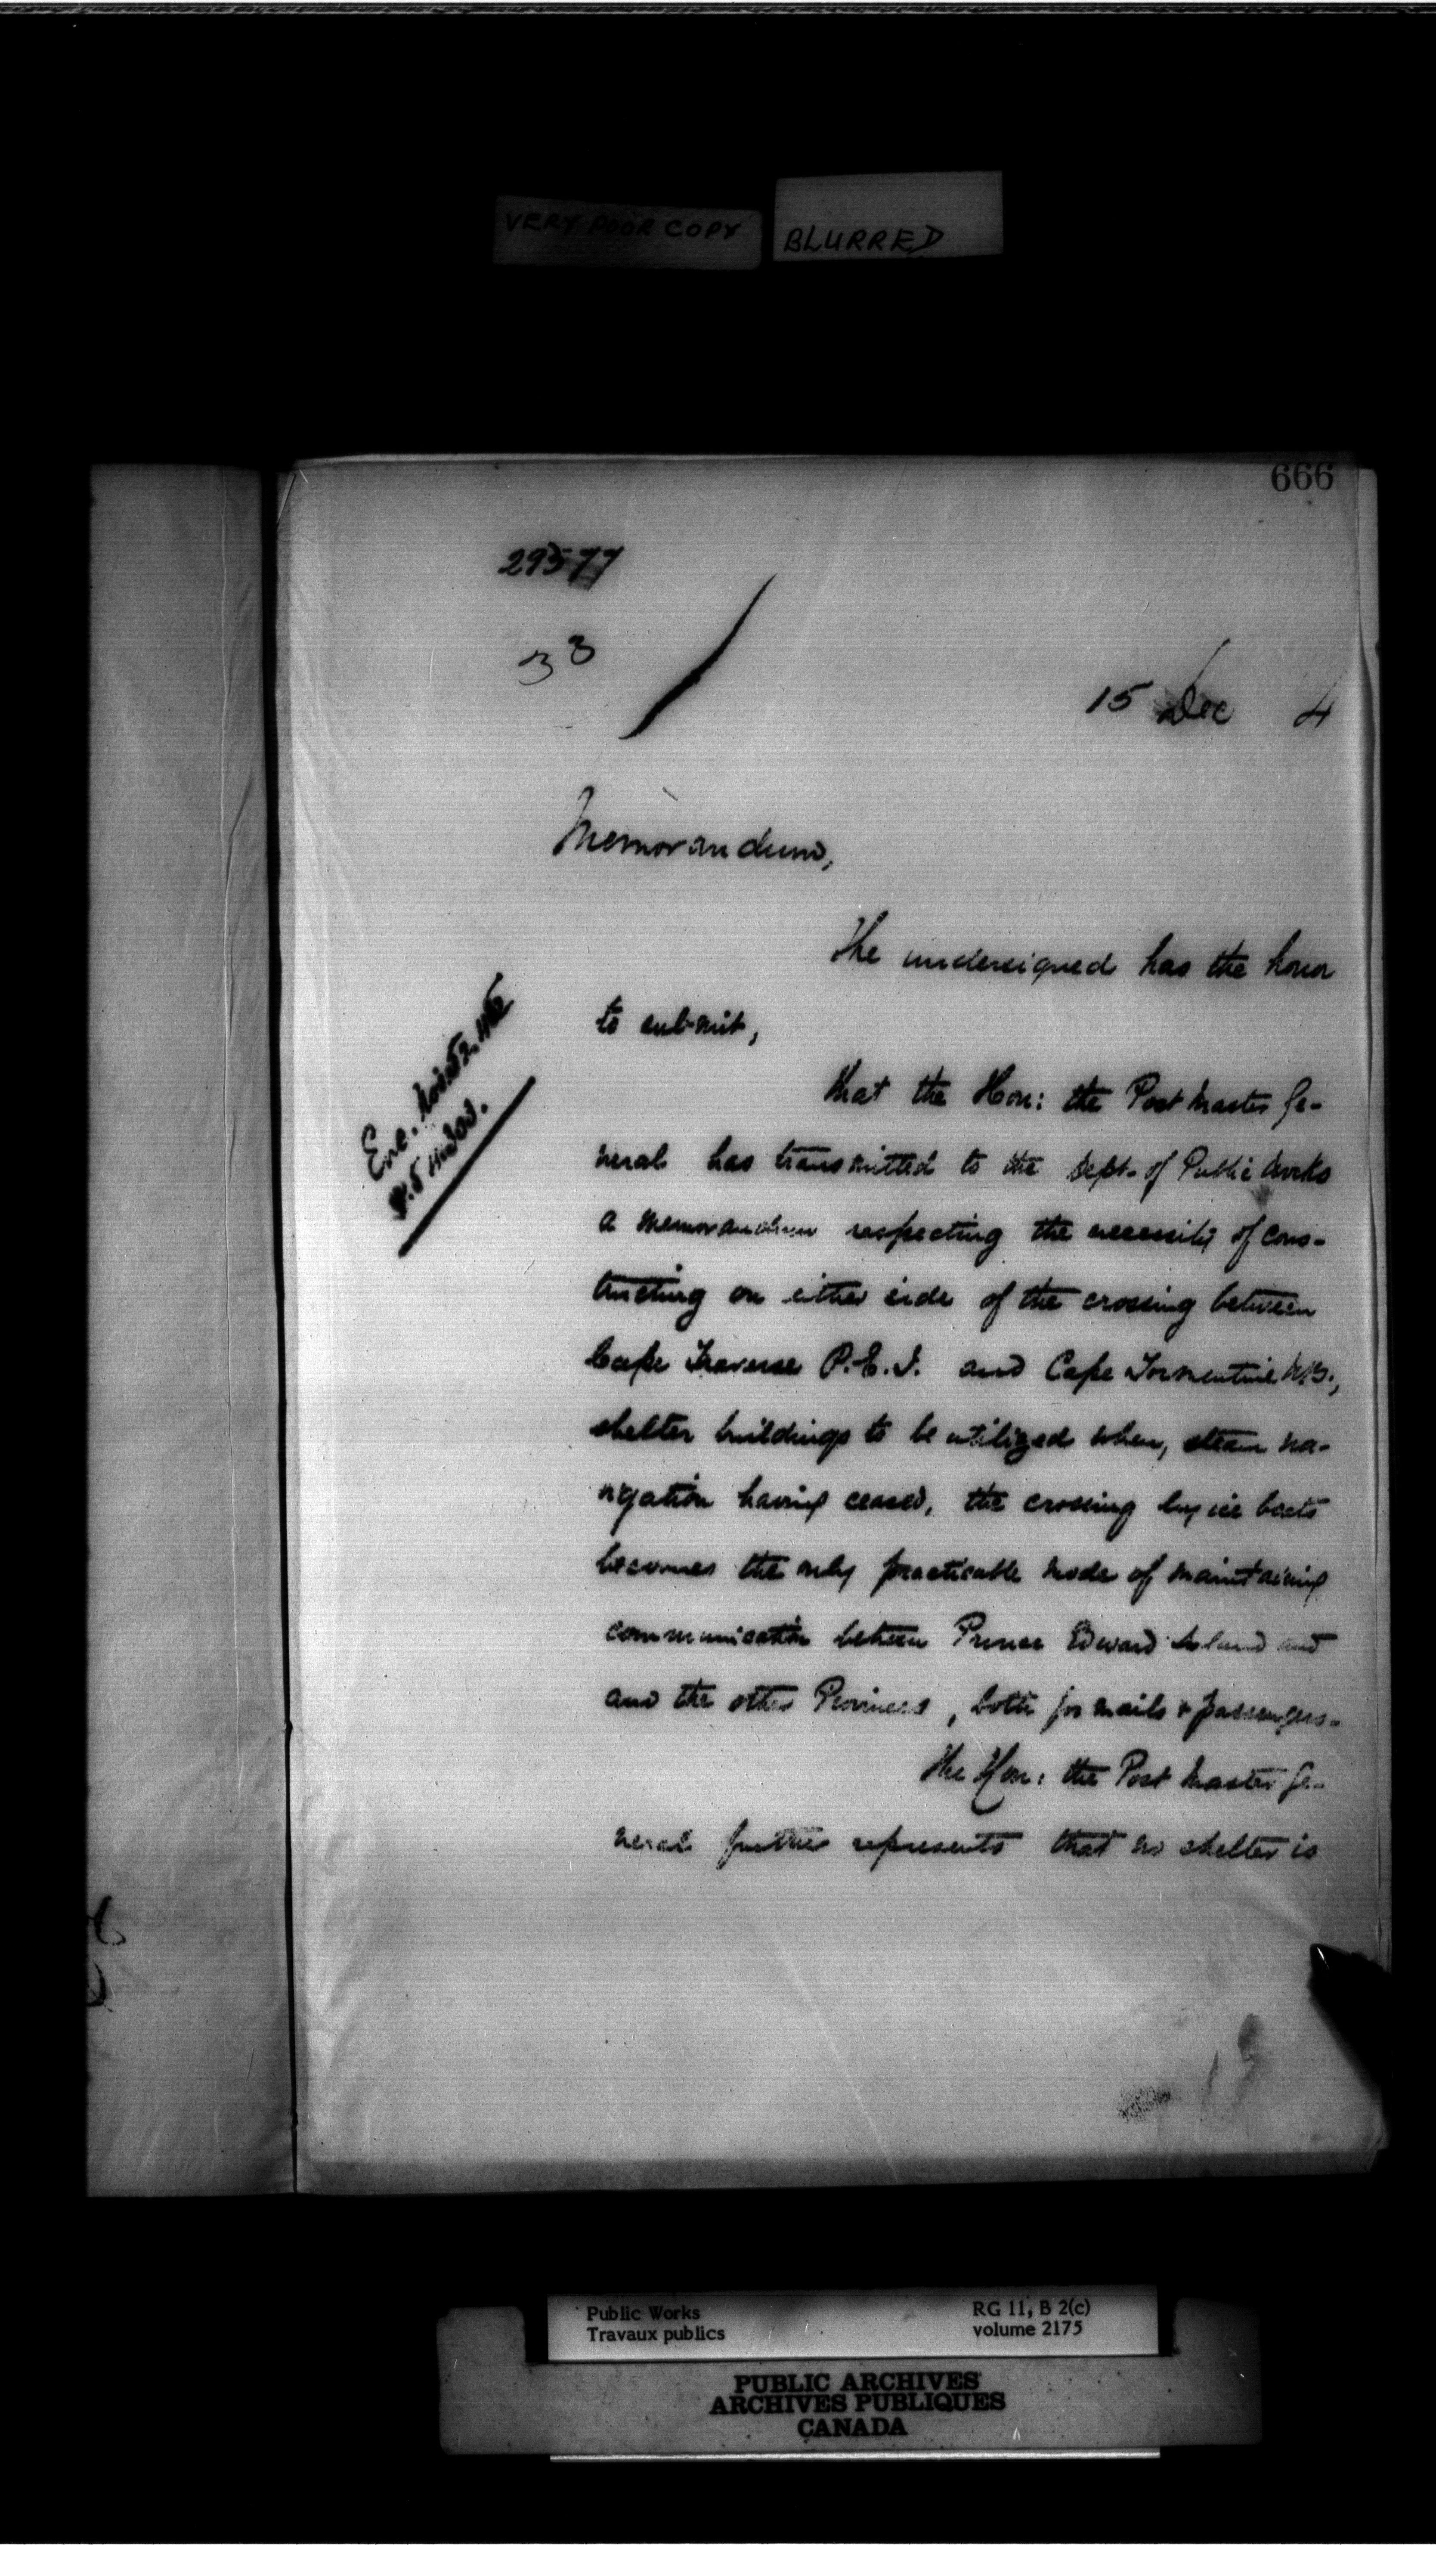 VERY POOR COPY
BLURRED
666
29577
33
15 Dec 4
Memorandum,
The undersigned has the honor
to submit,
that the Hon: the Post Master Ge-
neral has transmitted to the Dept. of Public Works
a memorandum respecting the necessity of cons-
tructing on either side of the crossing between
Cape Traverse P.E.I. and Cape Tormentine N.B.,
shelter buildings to be utilized when, steam na-
vigation having ceased, the crossing by ice boats
becomes the only practicable mode of maintaining
communication between Prince Edward Island and
and the other Provinces, both for mails & passengers.
The Hon: the Post Master Ge-
neral further represents that no shelter is
Enc.
Public Works
Travaux publics
RG 11, B 2(c)
volume 2175
PUBLIC ARCHIVES
ARCHIVES PUBLIQUES
CANADA